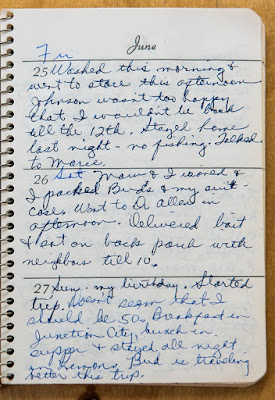 Fri
June
25 Washed this morning &
went to store this afternoon
Johnson wasn't too happy
that I wouldn't be back
till the 12th. Stayed home
last night - no fishing. Talked
to Marie.
26 Sat. Mom & I ironed &
I packed Bud's & my suit-
case. Went to Dr Allen in
afternoon. Delivered bait
& sat on back porch with
neighbors till 10.
27 Sun. my birthday. Started
trip. Doesn't seem that I
should be 50. Breakfast in
Junction City, lunch in
supper & stayed all night
in Bud is traveling
better this trip.